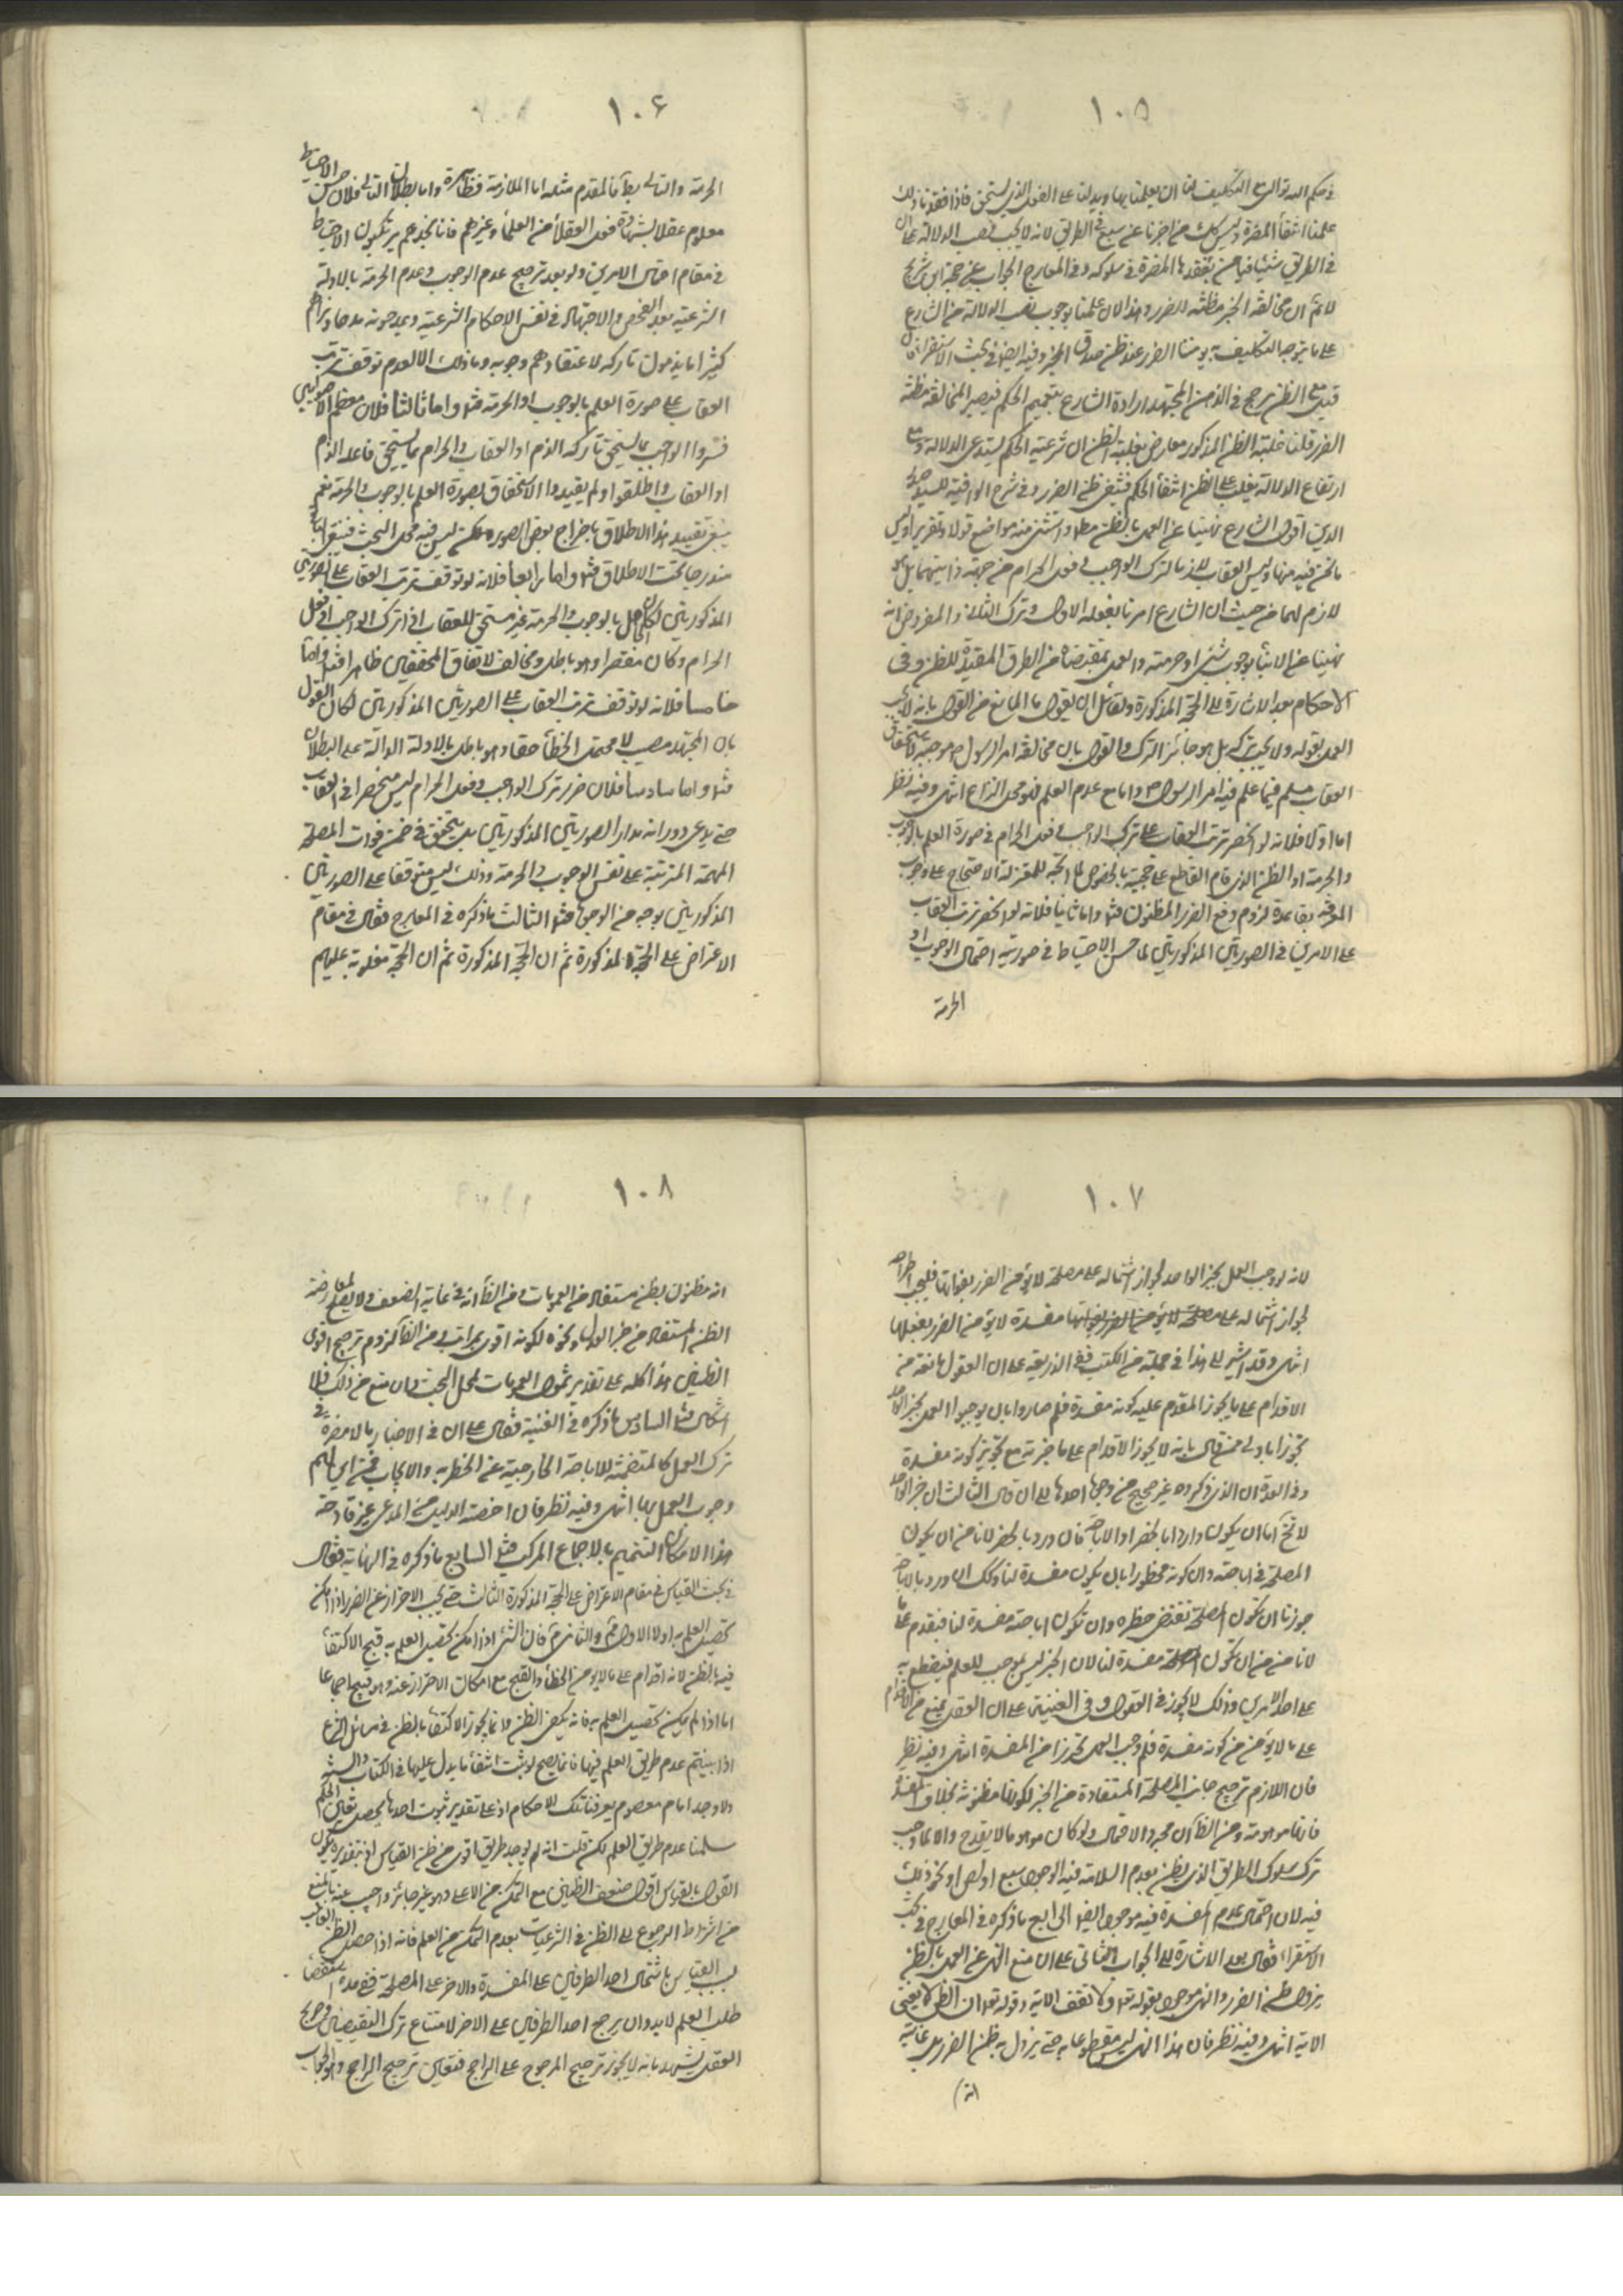 ١٠٥
علمنا انتفاء المضرة وليس كذلك من اخبرنا عن سبع فى الطريق لانه لا يجب نصب الدلالة على ان
لانم ان مخالفة الخبر مظنة للضرر وهذا لان علمنا بوجوب نصب الدلالة من الشارع
على ما يتوجه التكليف به يؤمننا الضرر عند ظن صدق المخبر وفيه ايضا فى بحث الاستقراء فان
قيل على الظن يرجح فى الذهن المجتهد ارادة الشارع بتعميم الحكم فيصير المخالفة مظنة
الضرر قلنا غلبة الظن المذكور معارض بغلبة الظن ان شرعية الحكم يستدعى الدلالة ومع
ارتفاع الدلالة يغلب على الظن انتفاء الحكم فينتفى ظن الضرر وفى شرح الوافية للسيد صدر
الدين اقول الشارع نهينا عن العمل بالظن مط واستثنى منه مواضع قولا وتقريرا وليس
ما نحن فيه منها وليس العقاب لازما لترك الواجب وفعل الحرام من جهة ذاتيهما بل هو
لازم لهما من حيث ان الشارع امرنا بفعله الاول وترك الثانى والمفروض انه
نهينا عن الانباء بوجوب شئ او حرمته والعمل بمقتضاه من الطرق المفيدة للظن وفى
الاحكام بعد الاشارة الى الحجة المذكورة ولقائل ان يقول ما المانع من القول بانه لا يجب
العمل بقوله ولا يجب تركه بل هو جائز الترك والقول بان مخالفة امر الرسول ص موجبة لاستحقاق
العقاب مسلم فيما علم فيه امر الرسول ص واما مع عدم العلم فهو محل النزاع انتهى وفيه نظر
اما اولا فلانه لو انحصر ترتب العقاب على ترك الواجب وفعل الحرام فى صورة العلم بالوجوب
والحرمة او الظن الذى قام القاطع على حجيته بالخصوص لما اتجه للمعتزلة الاحتجاج على وجوب
المعرفة بقاعدة لزوم دفع الضرر المظنون فت واما ثانيا فلانه لو انحصر ترتب العقاب
على الامرين فى الصورتين المذكورتين لما حسن الاحتياط فى صورتى احتمال الوجوب او
الحرمة
١٠٦
الحرمة والتالى بط فالمقدم مثله اما الملازمة فظاهرة واما بطلان التالى فلان حسن الاحتياط
معلوم عقلا بشهادة فعل العقلاء من العلماء وغيرهم فانا نجدهم يرتكبون الاحتياط
فى مقام احتمال الامرين ولو بعد ترجيح عدم الوجوب وعدم الحرمة بالادلة
الشرعية بعد الفحص والاجتهاد فى نفس الاحكام الشرعية ويمدحونه مدحا ونراهم
كثيرا ما يذمون تاركه لاعتقادهم وجوبه وما ذلك الا لعدم توقف ترتب
العقاب على صورة العلم بالوجوب او الحرمة فت واما ثالثا فلان معظم الاصوليين
فسروا الواجب بما يستحق تاركه الذم او العقاب والحرام بما يستحق فاعله الذم
او العقاب واطلقوا ولم يقيدوا الاستحقاق بصورة العلم بالوجوب والحرمة نعم
ينبغى تقييد هذا الاطلاق باخراج بعض الصور ولكن ليس فيه محل البحث فيبقى
مندرجا تحت الاطلاق فت واما رابعا فلانه لو توقف ترتب العقاب على الصورتين
المذكورتين لكان الجاهل بالوجوب والحرمة غير مستحق للعقاب اذا ترك الواجب او فعل
الحرام وكان مقصرا وهو باطل ومخالف لاتفاق المحققين ظاهرا فت واما
خامسا فلانه لو توقف ترتب العقاب على الصورتين المذكورتين لكان القول
بان المجتهد مصيب لا محتمل الخطأ حقا وهو باطل بالادلة الدالة على البطلان
فت واما سادسا فلان ضرر ترك الواجب وفعل الحرام ليس منحصرا فى العقاب
حتى يدعى دورانه مدار الصورتين المذكورتين بل يتحقق فى ضمن فوات المصلحة
المهمة المترتبة على نفس الوجوب والحرمة وذلك ليس متوقفا على الصورتين
المذكورتين بوجه من الوجوه فت الثالث ما ذكره فى المعارج فقال فى مقام
الاعتراض على الحجة المذكورة ثم ان الحجة المذكورة ثم ان الحجة مقلوبة عليهم
١٠٧
لانه لو وجب العمل بخبر الواحد لجواز اشتماله على مصلحة لا يؤمن الضرر بفواتها فليجب اطراحه
لجواز اشتماله على مصلحة لا يؤمن الضرر بفواتها مفسدة لا يؤمن الضرر بفعلها
انتهى وقد اشير الى هذا فى جملة من الكتب ففى الذريعة على ان العقول مانعة من
الاقدام على ما يجوز المقدم عليه كونه مفسدة فلم صاروا بان يوجبوا العمل بخبر الواحد
تجوزا باولى ممن قال بانه لا يجوز الاقدام على ما خبر به مع تجويز كونه مفسدة
وفى العدة ان الذى ذكروه غير صحيح من وجوه احدها الى ان قال الثالث ان خبر الواحد
لا يخ اما ان يكون واردا بالحظر او الاباحة فان ورد بالحظر لا نامن ان يكون
المصلحة فى اباحته وان كونه محظورا بان يكون مفسدة لنا وكذلك ان ورد بالاباحة
جوزنا ان تكون المصلحة تقتضى حظره وان تكون اباحته مفسدة لنا فنقدم على ما
لا نامن من ان تكون مفسدة لنا لان الخبر ليس بموجب للعلم فيقطع به
على احد الامرين وذلك لا يجوز فى العقول وفى الغنية على ان العقل يمنع من الاقدام
على ما لا يؤمن من كونه مفسدة فلم وجب العمل تحرزا من المفسدة انتهى وفيه نظر
فان اللازم ترجيح جانب المصلحة المستفادة من الخبر لكونها مظنونة بخلاف المفسدة
فانها موهومة ومن الظاهر ان مجرد الاحتمال ولو كان موهوما لا يقدح والا لما وجب
ترك سلوك الطريق الذى يظن بعدم السلامة فيه لوجود سبع او لص او نحو ذلك
فيه لان احتمال عدم المفسدة فيه موجود ايضا الرابع ما ذكره فى المعارج فى بحث
الاستقراء فقال بعد الاشارة الى الجواب الثانى على ان منع النهى عن العمل بالظن
يزول ظن الضرر والنهى موجود بقوله تعالى ولا تقف الاية وقوله تعالى ان الظن لا يغنى
الاية انتهى وفيه نظر فان هذا النهى ليس مقطوعا به حتى يزول به ظن الضرر بل غايته
انه
١٠٨
انه مظنون بظن مستفاد من العمومات ومن الظاهر انه فى غاية الضعف ولا يصلح لمعارضة
الظن المستفاد من خبر العدل ونحوه لكونه اقوى بمراتب ومن الظاهر لزوم ترجيح اقوى
الظنين هذا كله على تقدير شمول العمومات لمحل البحث وان منع من ذلك فلا
اشكال فت السادس ما ذكره فى الغنية فقال على ان فى الاخبار ما لا مضرة فى
ترك العمل كالمتضمنة للاباحة الخارجية عن الحظر به والايجاب فمن اين لهم
وجوب العمل بها انتهى وفيه نظر فان اخصية الدليل من المدعى غير قادحة
هنا لامكان التتميم بالاجماع المركب فت السابع ما ذكره فى النهاية فقال
فى بحث القياس فى مقام الاعتراض على الحجة المذكورة الثالث متى يجب الاحتراز عن الضرر اذا امكن
تحصيل العلم به اولا الاول م والثانى م فان الشئ اذا امكن تحصيل العلم به قبح الاكتفاء
فيه بالظن لانه اقدام على ما لا يؤمن الخطأ والقبح مع امكان الاحتراز عنه وهو قبيح اجماعا
اما اذا لم يمكن تحصيل العلم به فانه يكفى الظن وانما يجوز الاكتفاء بالظن فى مسائل الشرع
اذا بينتم عدم طريق العلم فيها فانما يصح لو ثبت انتفاء ما يدل عليها فى الكتاب والسنة
ولا وجد امام معصوم يعرفنا تلك الاحكام اذ على تقدير ثبوت احدها يحصل تعيين الحكم
سلمنا عدم طريق العلم لكن قلت انه لم يوجد طريق اقوى من ظن القياس اذ بتقديره يكون
القول بالقياس اقول ضعف الظنين مع التمكن من الاعلى وهو غير جائز واجيب عنه بالمنع
من اشتراط الرجوع الى الظن فى الشرعيات بعدم التمكن من العلم فانه اذا حصل الظن الغالب
بسبب القياس باشتمال احد الطرفين على المفسدة والاخر على المصلحة ففى مدة استقصاء
طلب العلم لابد وان يرجح احد الطرفين على الاخر لامتناع ترك النقيضين وصريح
العقل يشهد بانه لا يجوز ترجيح المرجوح على الراجح فتعين ترجيح الراجح وهو الجواب